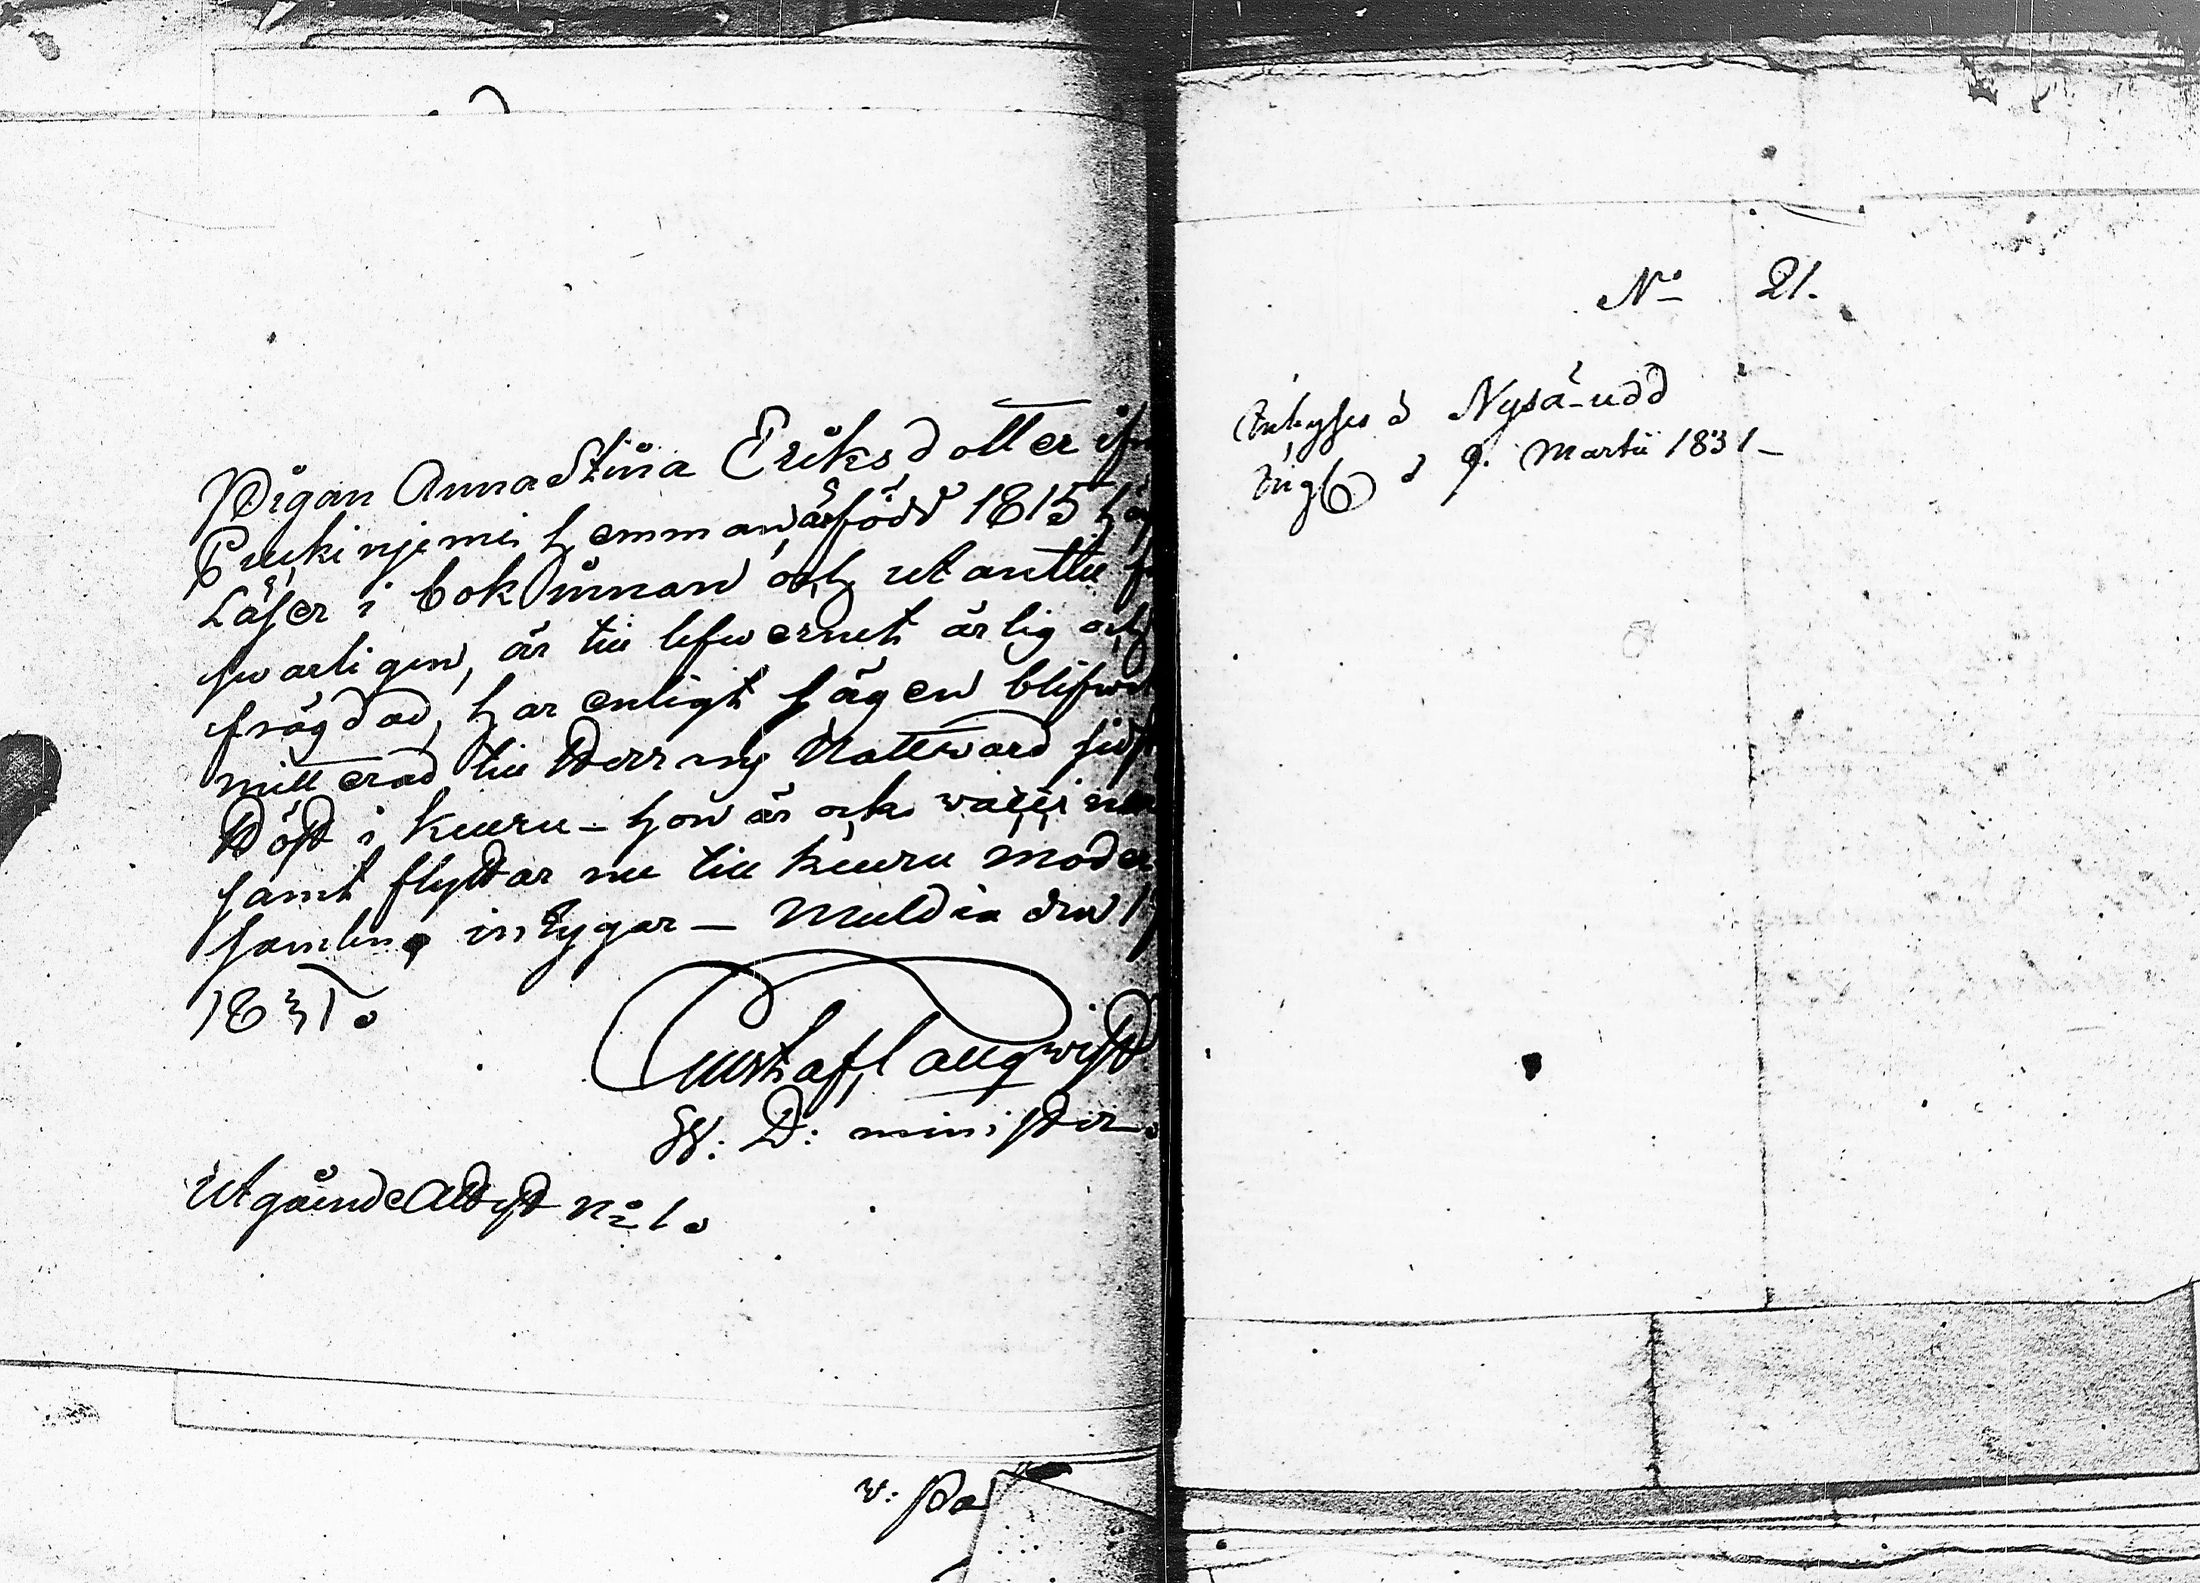 Pigan Anna Stina Eriksdotter ifr
hemman, är född 1815
Läser i bok innan och utantill
swarligen, är till lefwernet ärlig och
frägdad, har enligt sägen blifwit
mitterad till Herrans Nattward sist
Höst i Kuuru – hon är ock
samt flyttar nu till Kuuru Moder
samling intygar – Muldia den 1
1831.
Gustaf Laugwist
W: D: minister.
Utgående Attest No 1.
w:
No 21.
Nysä-udd
d 9. Martii 1831 –